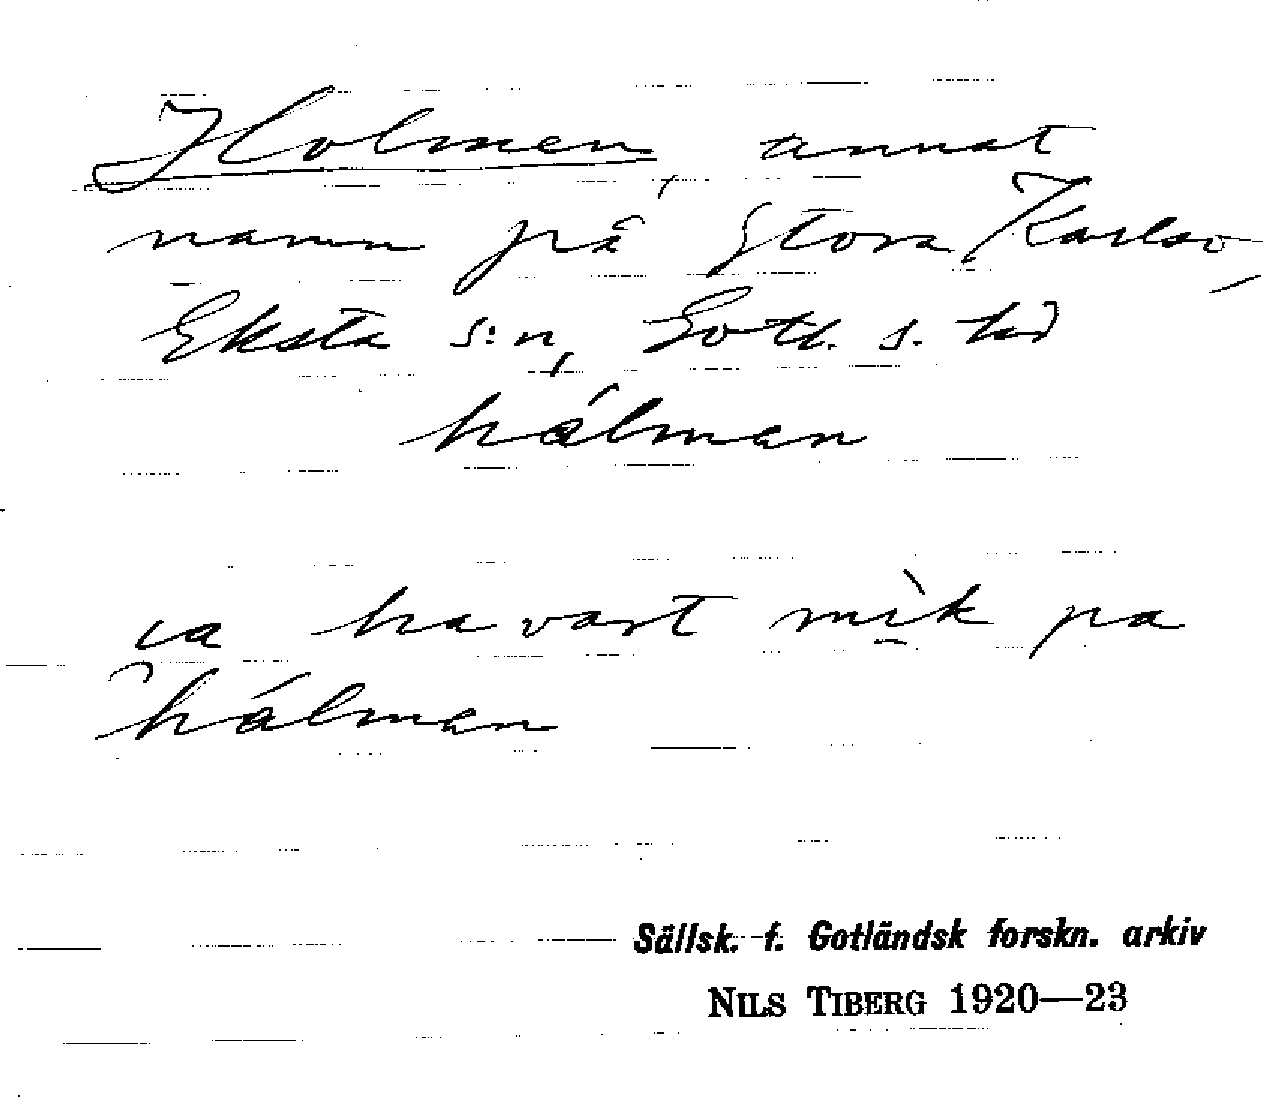 Holmen, annat
namn på Stora Karlsö,
Eksta s:n, Gotl. s. hd
hálman
ha vart mik pa
hálman
Sällsk. f. Gotländsk forskn. arkiv
NILS TIBERG 1920—23